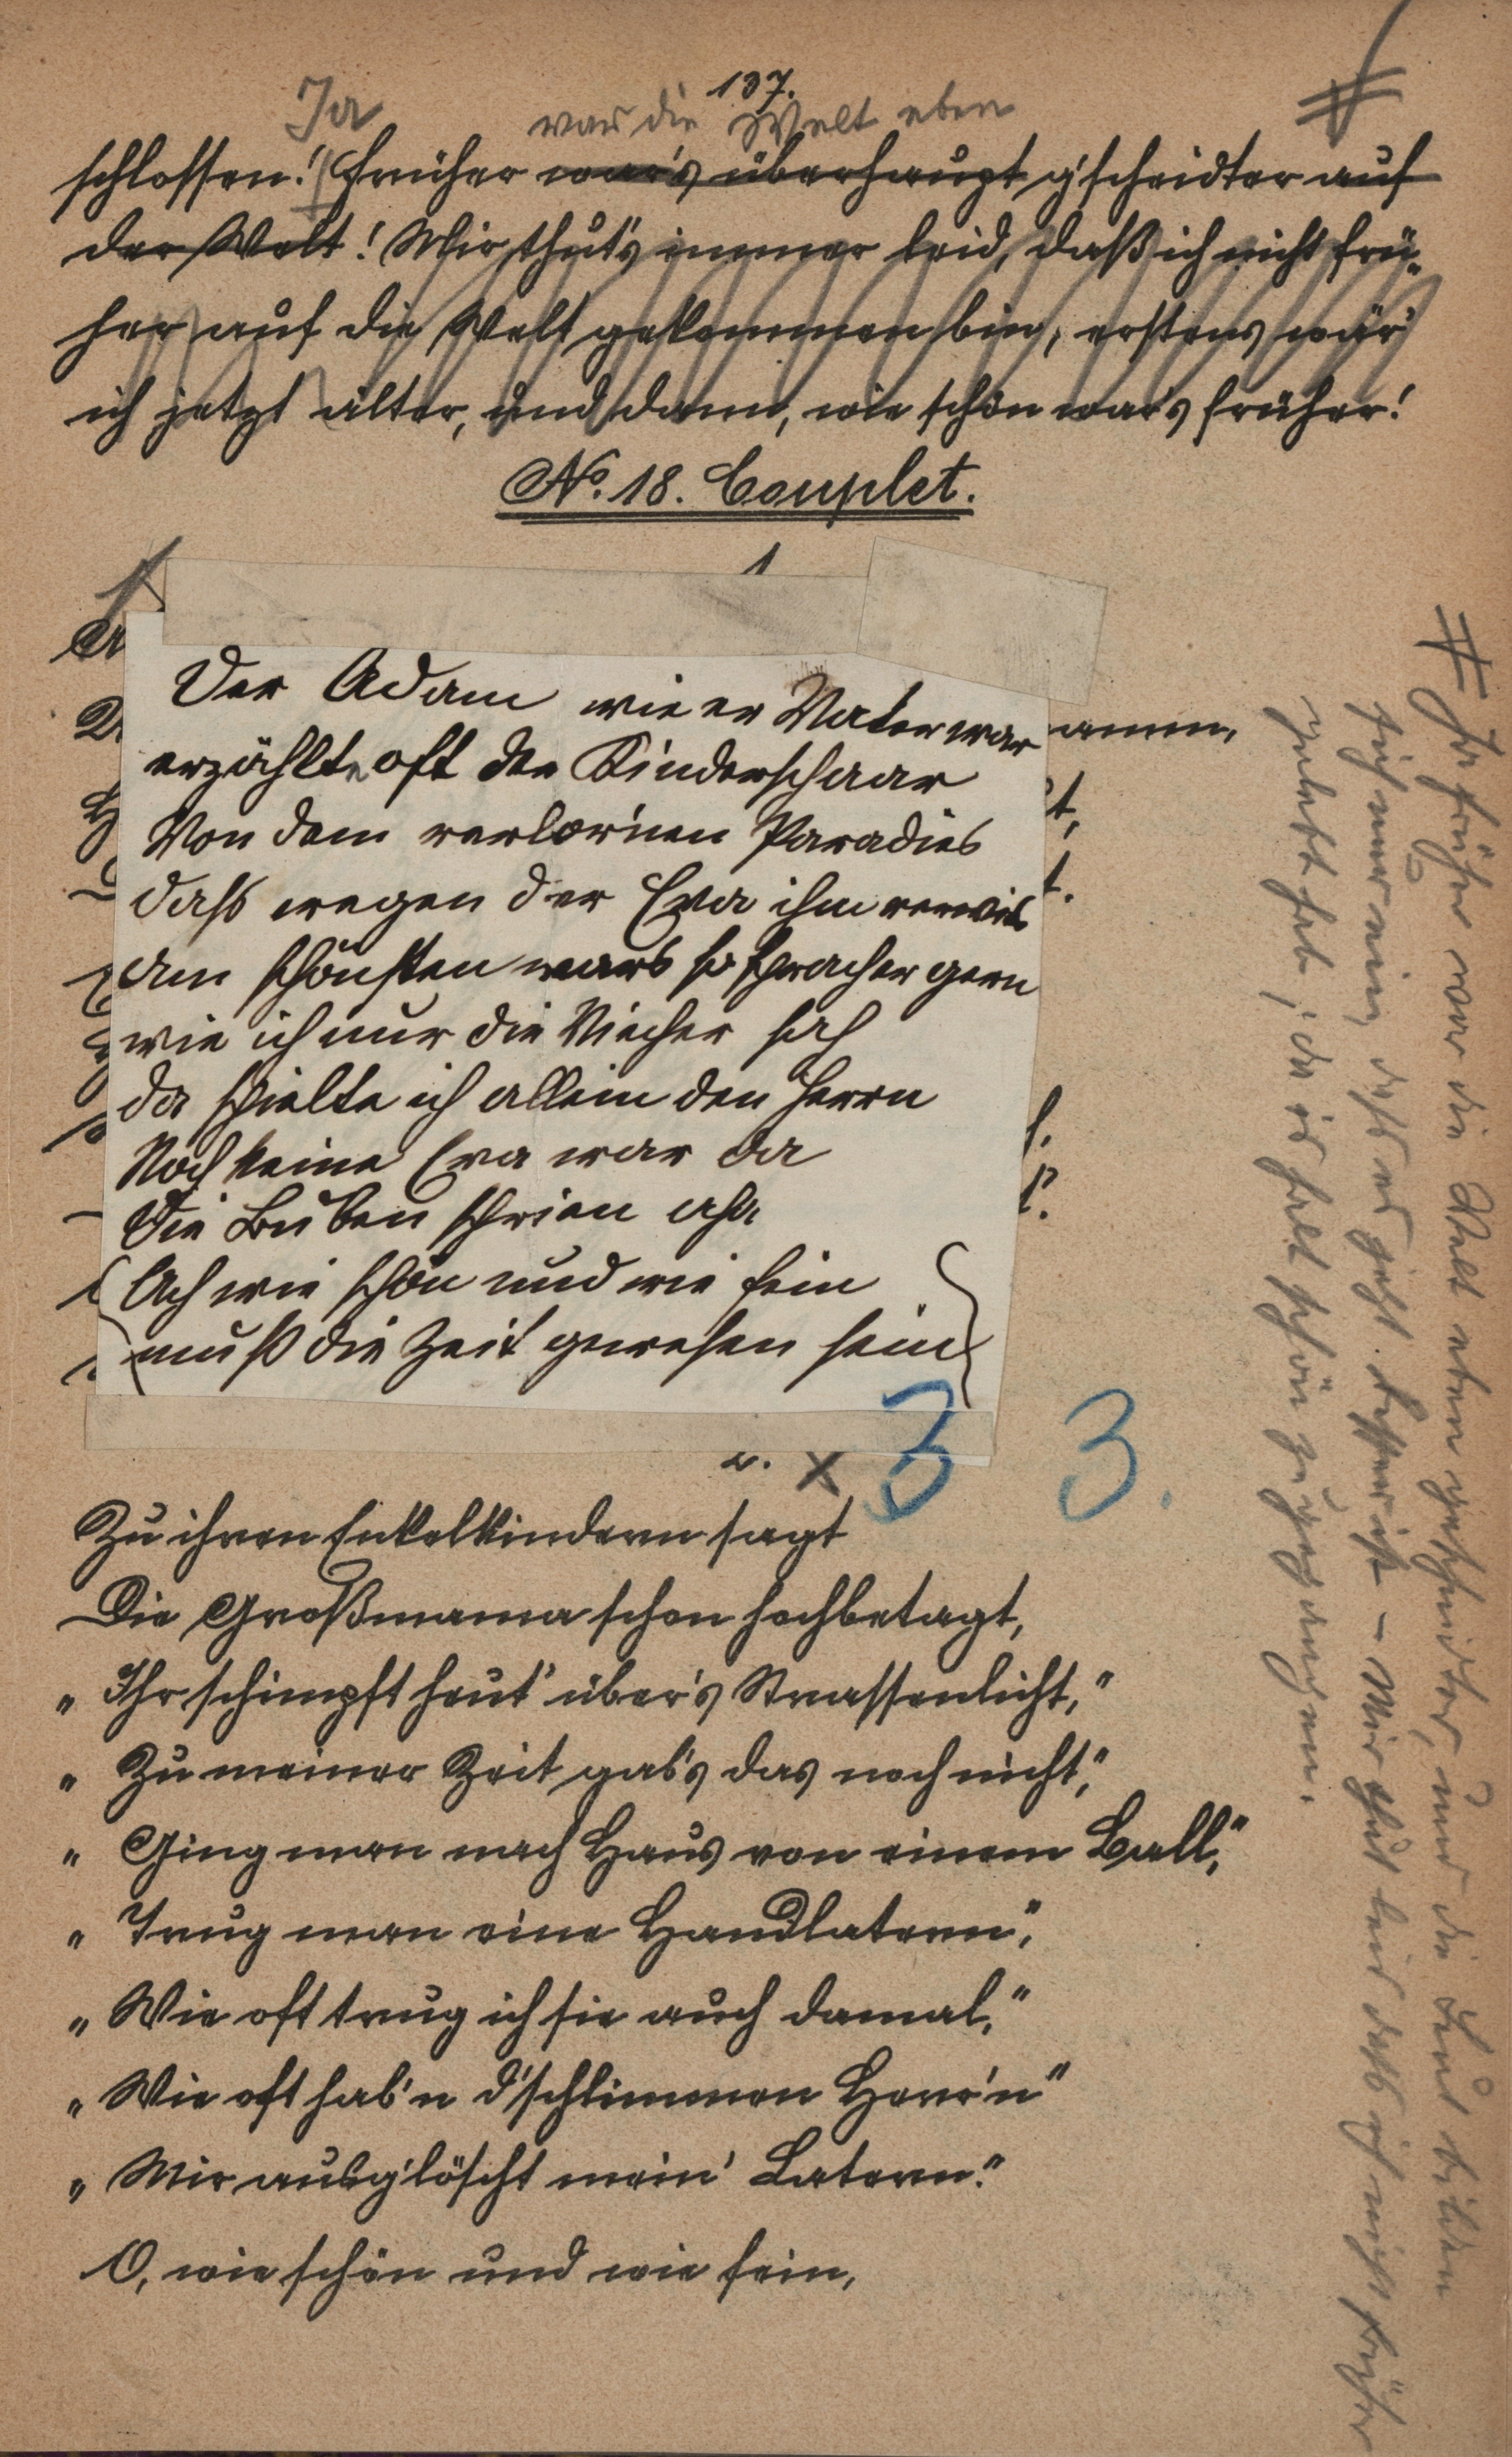 137.
Ja war die Welt eben
schlossen! Früher war's überhaupt g'scheidter auf
der Welt! Mir thut's immer leid, daß ich nicht frü-
her auf die Welt gekommen bin, erstens wär'
ich jetzt älter, und dann, wie schön war's früher!
No. 18. Couplet.
1
Der Adam wie er Vater war
erzählte oft der Kinderschaar
Von dem verlor'nen Paradies
dass wegen der Eva ihm verwies
am schönsten wars so sprach er gern
wie ich nur die Viecher sah
da spielte ich allein den Herrn
Noch keine Eva war da
Die Buben schrien aha
Ach wie schön und wie fein
muß die Zeit gewesen sein
amm,
t,
t.
2. x 3 3.
Zu ihren Enkelkindern sagt
Die Großmama schon hochbetagt,
„Ihr schimpft heut' über's Strassenlicht,"
„Zu meiner Zeit gab's das noch nicht,"
„Ging man nach Haus von einem Ball,"
„Trug man eine Handlatern,"
„Wie oft trug ich sie auch damal,"
„Wie oft hab'n d'schlimmen Herr'n"
„Mir ausg'löscht mein' Latern."
O, wie schön und wie fein,
# Ja früher war die Welt eben gescheidter, und die Leut bilden
sich nur ein, daß es jetzt besser ist – Mir thut leid daß ich nicht früher
gelebt hab, da is halt schön zugegangen.